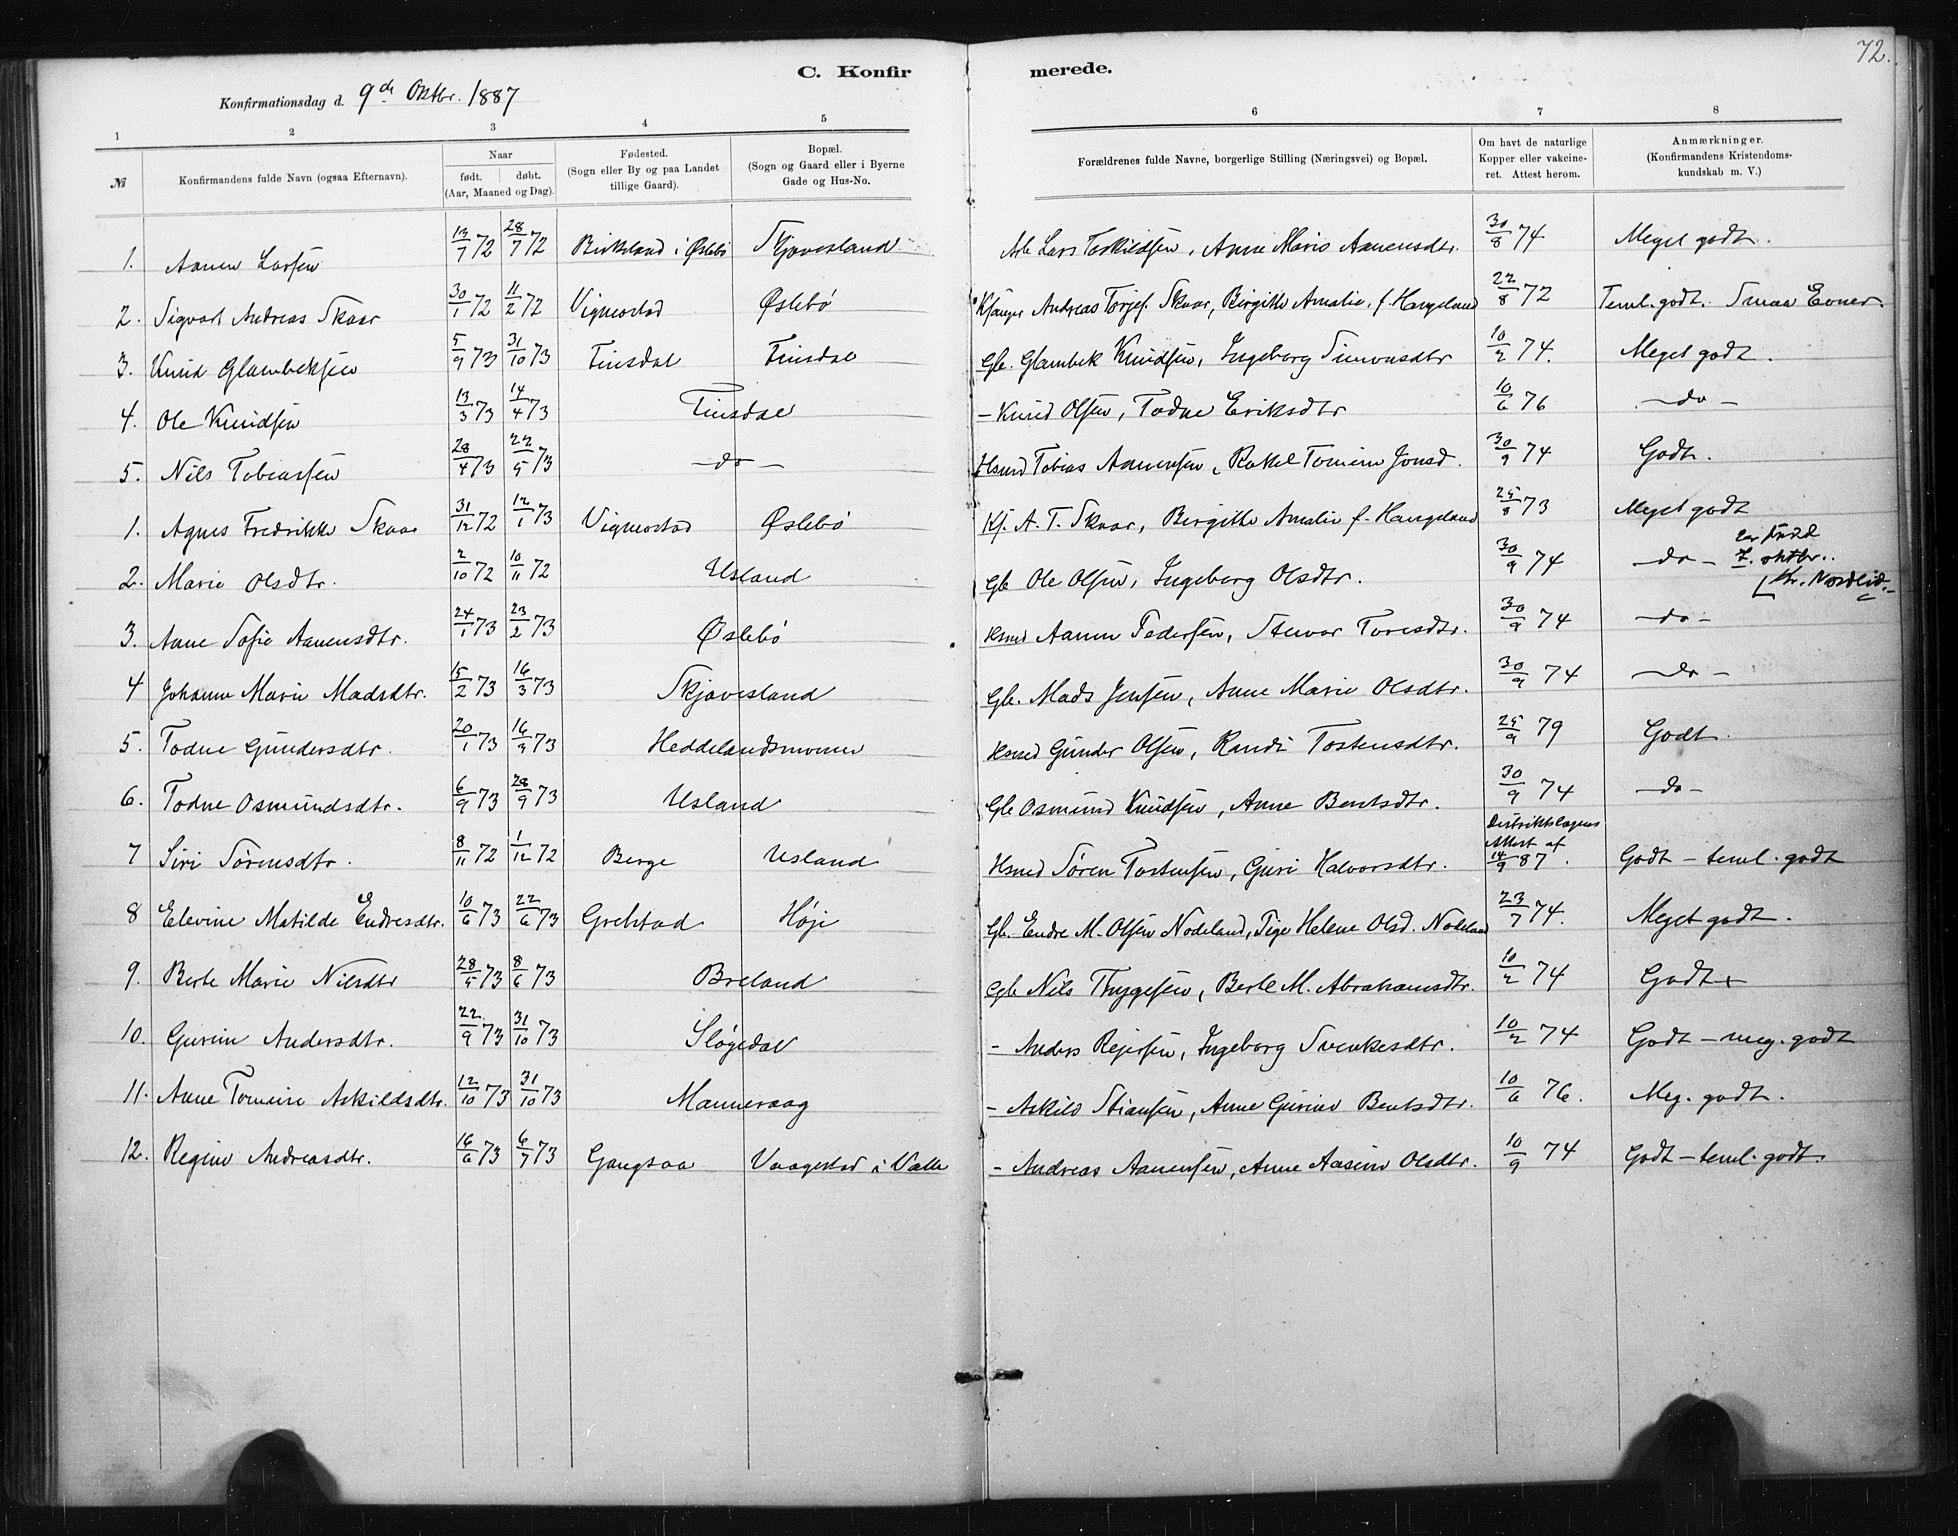 72.
C. Konfirmerede.
Konfirmationsdag d. 9de Oktbr. 1887
1 2 3 4 5 6 7 8
№ Konfirmandens fulde Navn (ogsaa Efternavn). Naar født. døbt. (Aar, Maaned og Dag). Fødested. (Sogn eller By og paa Landet tillige Gaard). Bopæl. (Sogn og Gaard eller i Byerne Gade og Hus-No. Forældrenes fulde Navne, borgerlige Stilling (Næringsvei) og Bopæl. Om havt de naturlige Kopper eller vakcineret. Attest herom. Anmærkninger. (Konfirmandens Kristendomskundskab m. V.)
1. Aanen Larsen 13/7 72 28/7 72 Birkeland i Øslebø Skjævesland Arb Lars Torkildsen, Anne Marie Aanensdtr. 30/8 74 Meget godt.
2. Sigvart Andreas Skaar 30/1 72 11/2 72 Vigmostad Øslebø Ksanger Andreas Torjes. Skaar, Birgitte Amalie, f. Haugeland 22/8 72 Teml. godt. Smaa Evner.
3. Knud Glambeksen 5/9 73 31/10 73 Finsdal Finsdal Gb. Glambek Knudsen, Ingeborg Simonsdtr 10/2 74. Meget godt.
4. Ole Knudsen 13/3 73 14/4 73 Finsdal - Knud Olsen, Todne Eriksdtr 10/6 76 - do -
5. Nils Tobiassen 28/4 73 22/5 73 - do - Hsmd Tobias Aanensen, Rakel Tomine Jonsd. 30/9 74 Godt.
1. Agnes Fredrikke Skaar 31/12 72 12/1 73 Vigmostad Øslebø Ks. A. T. Skaar, Birgitte Amalie f. Haugeland 25/8 73 Meget godt
2. Marie Olsdtr. 2/10 72 10/11 72 Usland Gb Ole Olsen, Ingeborg Olsdtr. 30/9 74 - do - er født 7. oktbr.. Nordlid.
3. Anne Sofie Aanensdtr. 24/1 73 23/2 73 Øslebø Hsmd Aanen Pedersen, Toresdtr. 30/9 74 - do -
4 Johanne Marie Madsdtr. 15/2 73 16/3 73 Skjævesland Gb. Mads Jensen, Anne Marie Olsdtr. 30/9 74 - do -
5. Todne Gundersdtr. 20/1 73 16/3 73 Heddelandsmoen Hsmd Gunder Olsen, Randi Tostensdtr. 25/9 79 Godt.
6. Todne Osmundsdtr. 6/9 73 28/9 73 Usland Gb Osmund Knudsen, Anne Bentsdtr. 30/9 74 - do -
7 Siri Sørensdtr. 8/11 72 1/12 72 Berge Usland Hsmd Søren Tostensen, Guri Halvorsdtr. Distriktslægens Attest af 14/9 87. Godt - teml. godt
8 Elevine Matilde Endresdtr. 10/6 73 22/6 73 Grelstad Høje Gb. Endre M. Olsen Nodeland, Helene Olsd. Nodeland 23/7 74. Meget godt.
9. Berte Marie Nilsdtr 28/5 73 8/6 73 Breland Gb Nils Thygesen, Berte M. Abrahamsdtr. 10/2 74 Godt+
10. Gurine Andersdtr. 22/9 73 31/10 73 Sløgedal - Anders Rejersen, Ingeborg Svenkesdtr. 10/2 74 Godt - meg. godt
11. Anne Tomine Askildsdtr. 12/10 73 31/10 73 Mannevaag - Askild Stiansen, Anne Gurine Bentsdtr. 10/6 76. Meg. godt.
12. Regine Andreasdtr. 16/6 73 6/7 73 Gangsaa Vaagestad i Valle - Andreas Aanensen, Anne Aasine Olsdtr. 10/9 74 Godt - teml. godt.